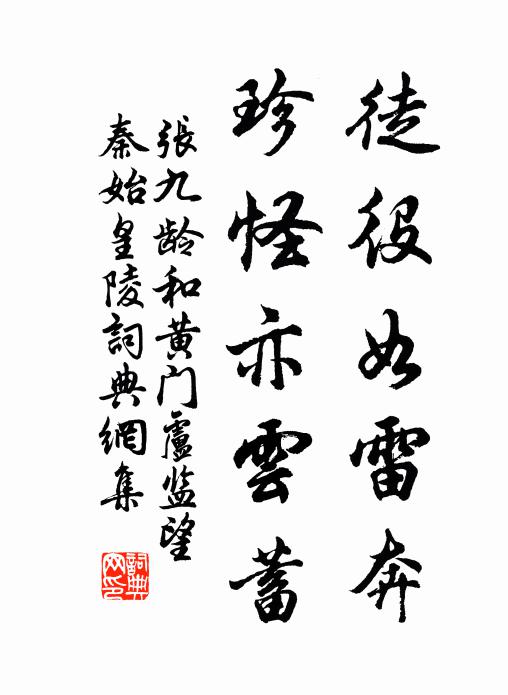 徒役如雷奔
珍怪亦雲蓄
張九龄和黄门盧监望
秦始皇陵詞典網集
詞典
网印